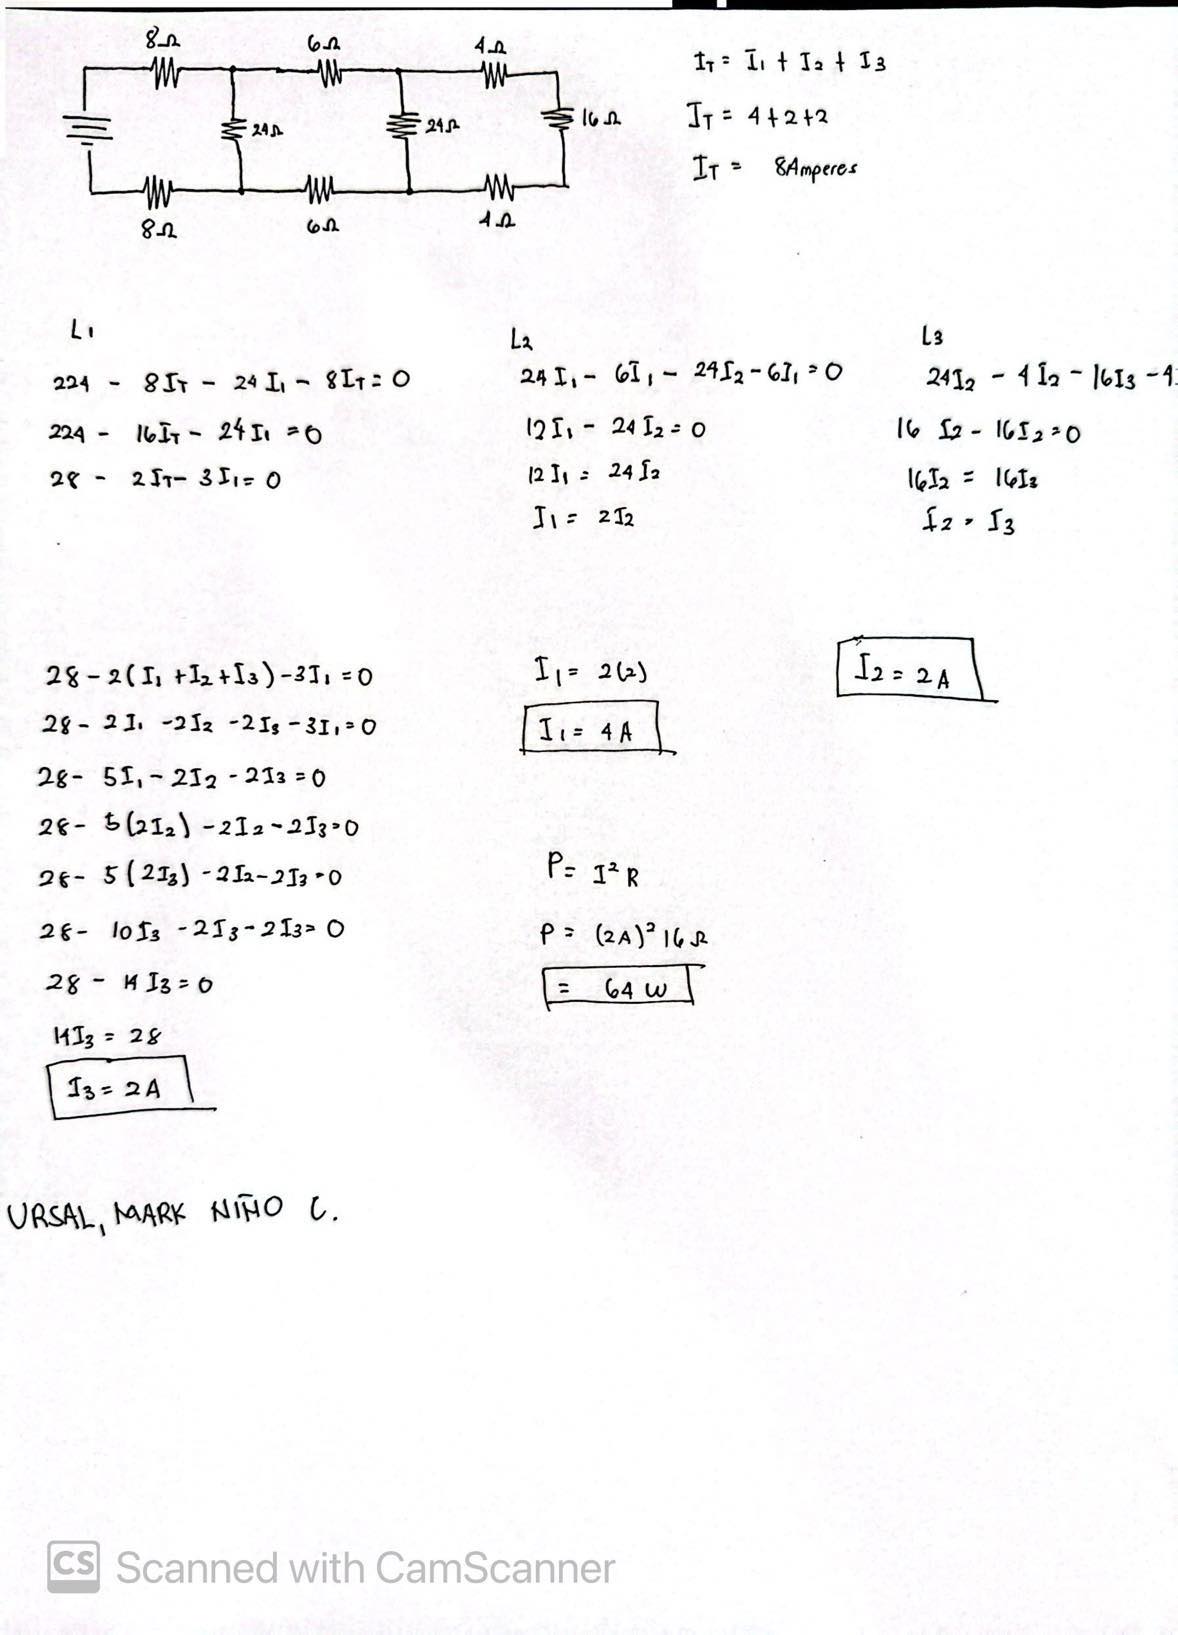 8Ω 6Ω 4Ω
24Ω 24Ω 16Ω
8Ω 6Ω 4Ω
I_T = I₁ + I₂ + I₃
I_T = 4+2+2
I_T = 8Amperes
L₁
224 - 8I_T - 24I₁ - 8I_T = 0
224 - 16I_T - 24I₁ = 0
28 - 2I_T - 3I₁ = 0
L₂
24I₁ - 6I₁ - 24I₂ - 6I₁ = 0
12I₁ - 24I₂ = 0
12I₁ = 24I₂
I₁ = 2I₂
L₃
24I₂ - 4I₂ - 16I₃ - 4
16 I₂ - 16I₂ = 0
16I₂ = 16I₃
I₂ = I₃
28 - 2(I₁ + I₂ + I₃) - 3I₁ = 0
28 - 2I₁ - 2I₂ - 2I₃ - 3I₁ = 0
28 - 5I₁ - 2I₂ - 2I₃ = 0
28 - 5(2I₂) - 2I₂ - 2I₃ = 0
28 - 5(2I₃) - 2I₂ - 2I₃ = 0
28 - 10I₃ - 2I₃ - 2I₃ = 0
28 - 14I₃ = 0
14I₃ = 28
I₃ = 2A
I₁ = 2(2)
I₁ = 4A
P = I²R
P = (2A)² 16Ω
= 64 W
I₂ = 2A
URSAL, MARK NIÑO C.
CS Scanned with CamScanner